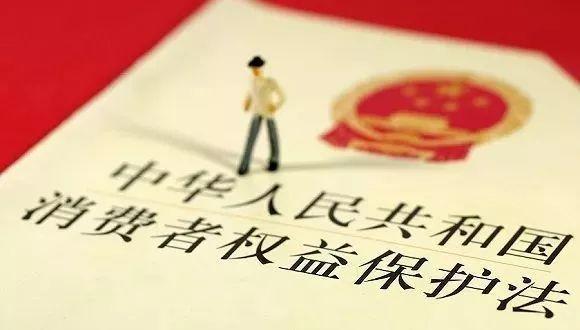 中华人民共和国
消费者权益保护法